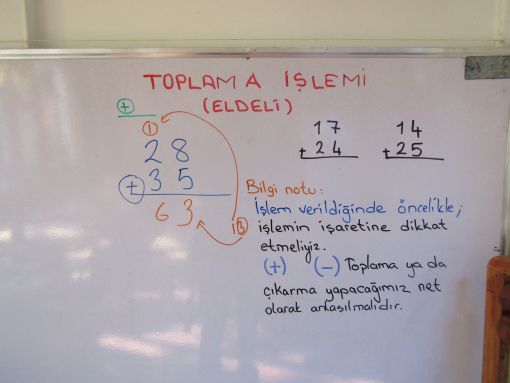 TOPLAMA İŞLEMİ
(ELDELİ)
+
1
28
+ 35
63
13
17
+ 24
14
+ 25
Bilgi notu:
İşlem verildiğinde öncelikle;
işlemin işaretine dikkat
etmeliyiz.
(+) (-) Toplama ya da
çıkarma yapacağımız net
olarak anlaşılmalıdır.